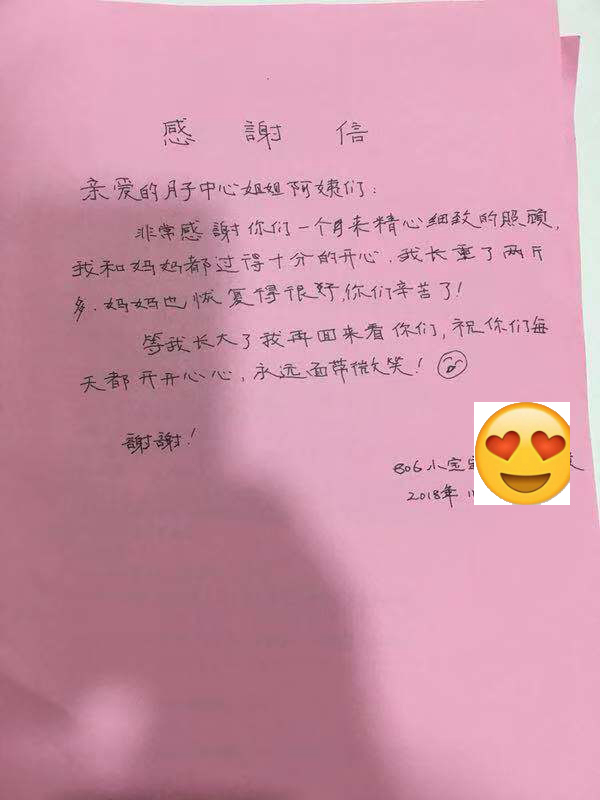 感謝信
亲爱的月子中心姐姐阿姨们:
非常感謝你们一个月来精心细致的照顾,
我和妈妈都过得十分的开心.我长重了两斤
多.妈妈也恢复得很好,你们辛苦了!
等我长大了我再回来看你们,祝你们每
天都开开心心,永远面带微笑!
謝謝!
806小宝
2018年11